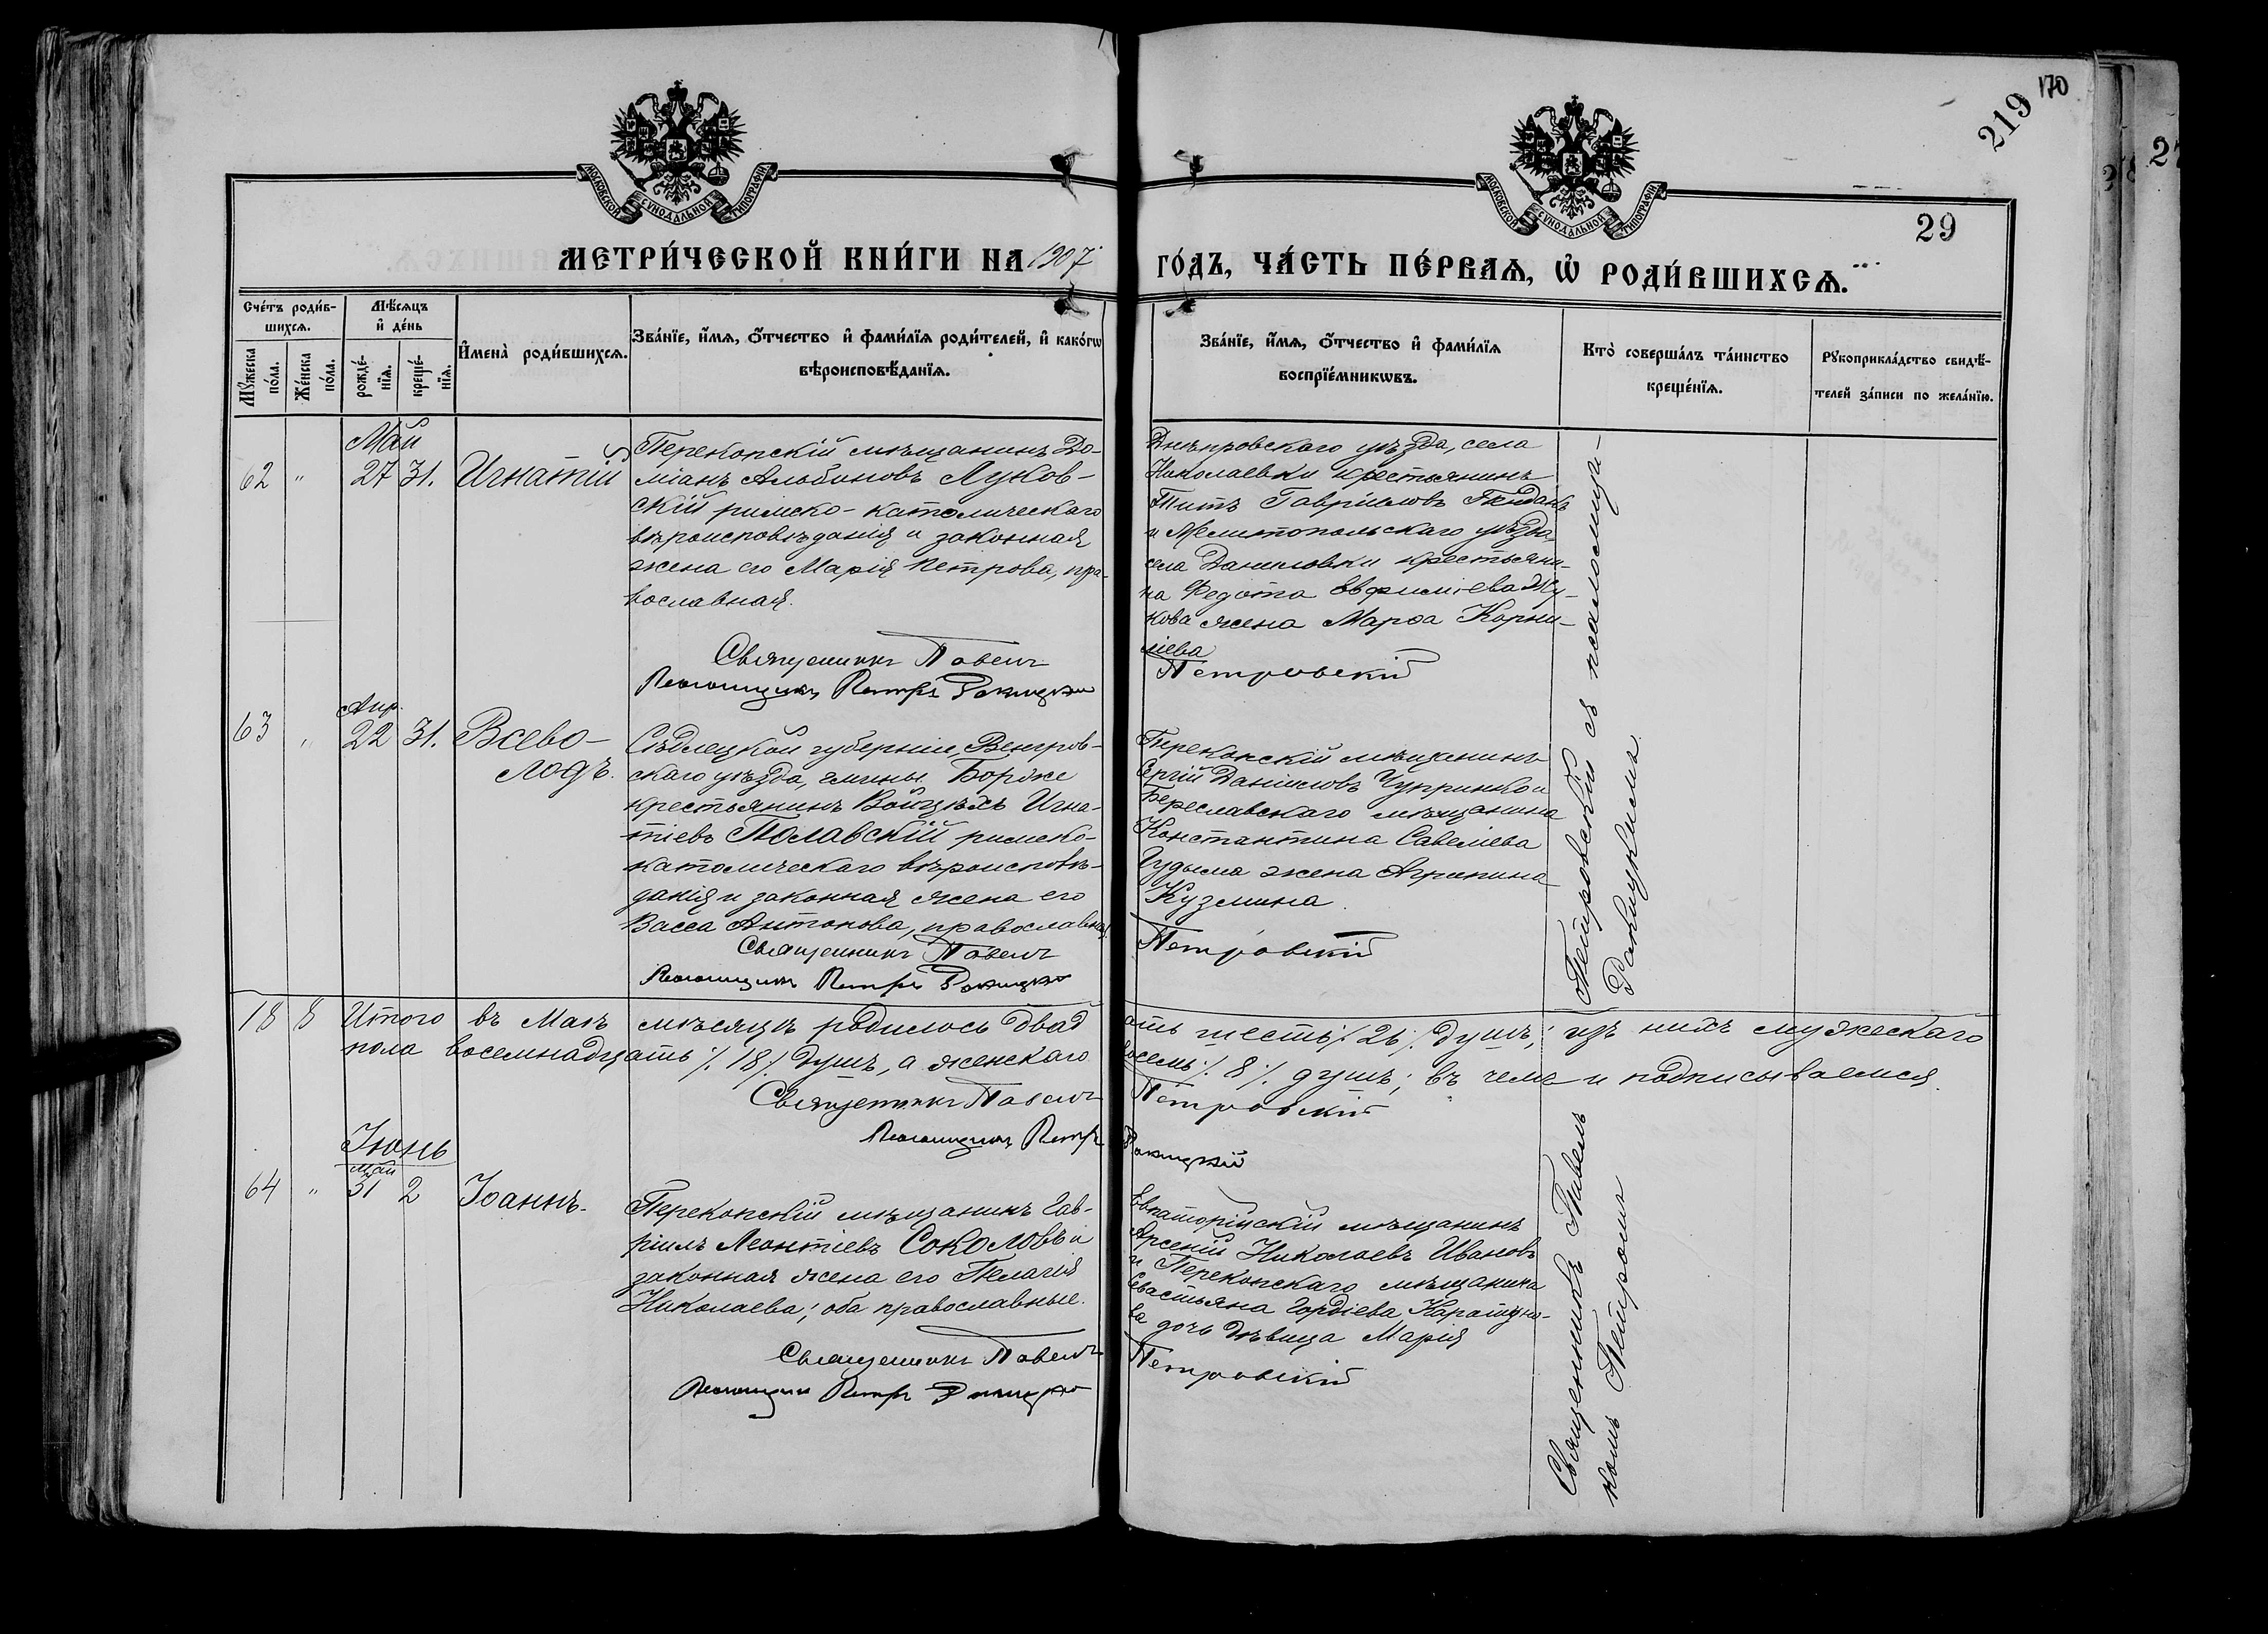 170
219
27
29
МОСКОВСКОЙ СѴНОДАЛЬНОЙ ТИПОГРАФІИ
МОСКОВСКОЙ СѴНОДАЛЬНОЙ ТИПОГРАФІИ
МЕТРИ́ЧЕСКОЙ КНИ́ГИ НА 1907
ГО́ДЪ, ЧА́СТЬ ПЕ́РВАѦ, Ѽ РОДИ́ВШИХСѦ.
Сче́тъ роди́в-
шихсѧ.
Мꙋжеска
по́ла.
Же́нска
по́ла.
Мѣ́сѧцъ
и҆ де́нь
рожде́-
нїѧ.
креще́-
нїѧ.
И҆мена̀ роди́вшихсѧ.
Зва́нїе, и҆́мѧ, ѻ҆́тчество и҆ фами́лїѧ роди́телей, и҆ како́гѡ
вѣроисповѣ́данїѧ.
Зва́нїе, и҆́мѧ, ѻ҆́тчество и҆ фами́лїѧ
воспрїе́мникѡвъ.
Кто̀ соверша́лъ та́инство
креще́нїѧ.
Рꙋкоприкла́дство свидѣ́-
телей за́писи по жела́нїю.
Май
62 " 27 31. Игнатій
Перекопскій мѣщанинъ До-
міанъ Альбиновъ Луков-
скій римско-католическаго
вѣроисповѣданія и законная
жена его Марія Петрова, пра-
вославная.
Священникъ Павелъ
Псаломщикъ Петръ Ракицкій
Днѣпровскаго уѣзда, села
Николаевки крестьянинъ
Титъ Гавріиловъ
и Мелитопольскаго уѣзда,
села Даниловки крестьяни-
на Федота Евфиміева Жу-
кова жена Марѳа Корни-
ліева
Петровскій
Апр.
63 " 22 31. Всево-
лодъ.
Сѣдлецкой губерніи, Венгров-
скаго уѣзда, гмины Борже
крестьянинъ Войцѣхъ Игна-
тіевъ Полавскій римско-
католическаго вѣроисповѣ-
данія и законная жена его
Васса Антонова, православная
Священникъ Павелъ
Псаломщикъ Петръ Ракицкій
Перекопскій мѣщанинъ
Сергій Даніиловъ Чупринко и
Береславскаго мѣщанина
Константина Савеліева
Чудыма жена Агрипина
Кузмина.
Петровскій
Петровскій съ псаломщи-
Ракицкимъ.
18 8 Итого въ Маѣ мѣсяцѣ родилось двад
ать шесть /. 26 /. душъ; изъ нихъ мужескаго
пола восемнадцать /. 18 /. душъ, а женскаго
восемь /. 8 /. душъ; въ чемъ и подписываемся.
Священникъ Павелъ
Петровскій
Псаломщикъ Петръ
Ракицкій
Іюнь
Май
64 " 31 2 Іоаннъ.
Перекопскій мѣщанинъ Гав-
ріилъ Леонтіевъ Соколовъ и
законная жена его Пелагія
Николаева; оба православные.
Священникъ Павелъ
Псаломщикъ Петръ Ракицкій
Евпаторійскій мѣщанинъ
Арсеній Николаевъ Ивановъ
и Перекопскаго мѣщанина
Севастьяна Гордіева
ва дочь дѣвица Марія
Петровскій
Священникъ Павелъ
комъ Петромъ